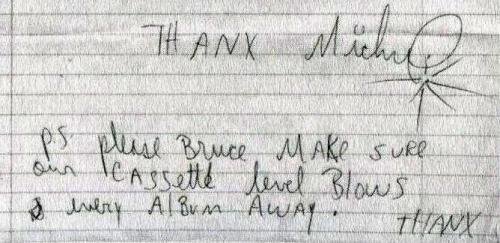 THANX Michael
p.s. please Bruce MAKE SURE
our CASSETTE level Blows
every AlBum AWAY.
THANX